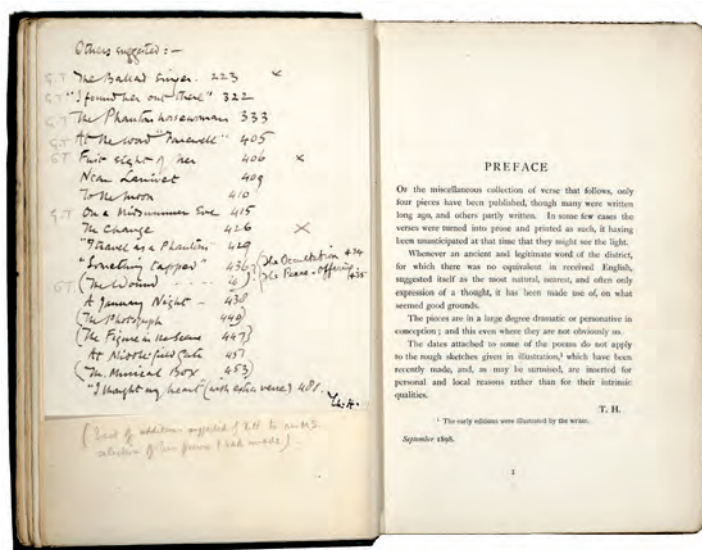 Others suggested:—
G.T The Ballad Singer. 223 ×
G.T "I found her out there" 322
G.T The Phantom horsewoman 333
G.T At the word "Farewell" 405
G.T First sight of her 406 ×
Near Lanivet 409
To the moon 410
G.T On a Midsummer Eve 415
The change 426 ×
"I travel as a Phantom" 429
"Something tapped" 436 (The Occultation 434
G.T (The Wound ..... ") (The Peace-Offering 435
A January Night — 438
(The Photograph 440)
(The Figure in the Scene 447)
At Middlefield Gate 451
(The Musical Box 453)
"I thought my heart" (with extra verse) 488.
Th. H.
(List of additions suggested by T.H. to an M.S.
selection of his poems I had made).
PREFACE
OF the miscellaneous collection of verse that follows, only
four pieces have been published, though many were written
long ago, and others partly written. In some few cases the
verses were turned into prose and printed as such, it having
been unanticipated at that time that they might see the light.
Whenever an ancient and legitimate word of the district,
for which there was no equivalent in received English,
suggested itself as the most natural, nearest, and often only
expression of a thought, it has been made use of, on what
seemed good grounds.
The pieces are in a large degree dramatic or personative in
conception; and this even where they are not obviously so.
The dates attached to some of the poems do not apply
to the rough sketches given in illustration,¹ which have been
recently made, and, as may be surmised, are inserted for
personal and local reasons rather than for their intrinsic
qualities.
T. H.
¹ The early editions were illustrated by the writer.
September 1898.
1